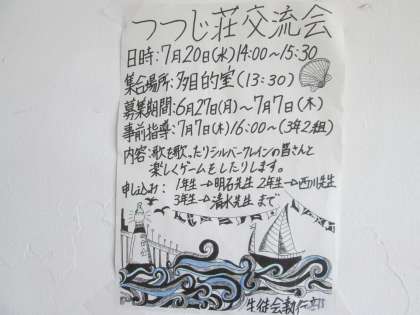 つつじ荘交流会
日時:7月20日(水)14:00〜15:30
集合場所:多目的室(13:30)
募集期間:6月27日(月)〜7月7日(木)
事前指導:7月7日(木)16:00〜(3年2組)
内容:歌を歌ったりシルバークレインの皆さんと
楽しくゲームをしたりします。
申し込み: 1年生→明石先生 2年生→西川先生
3年生→清水先生 まで
生徒会執行部